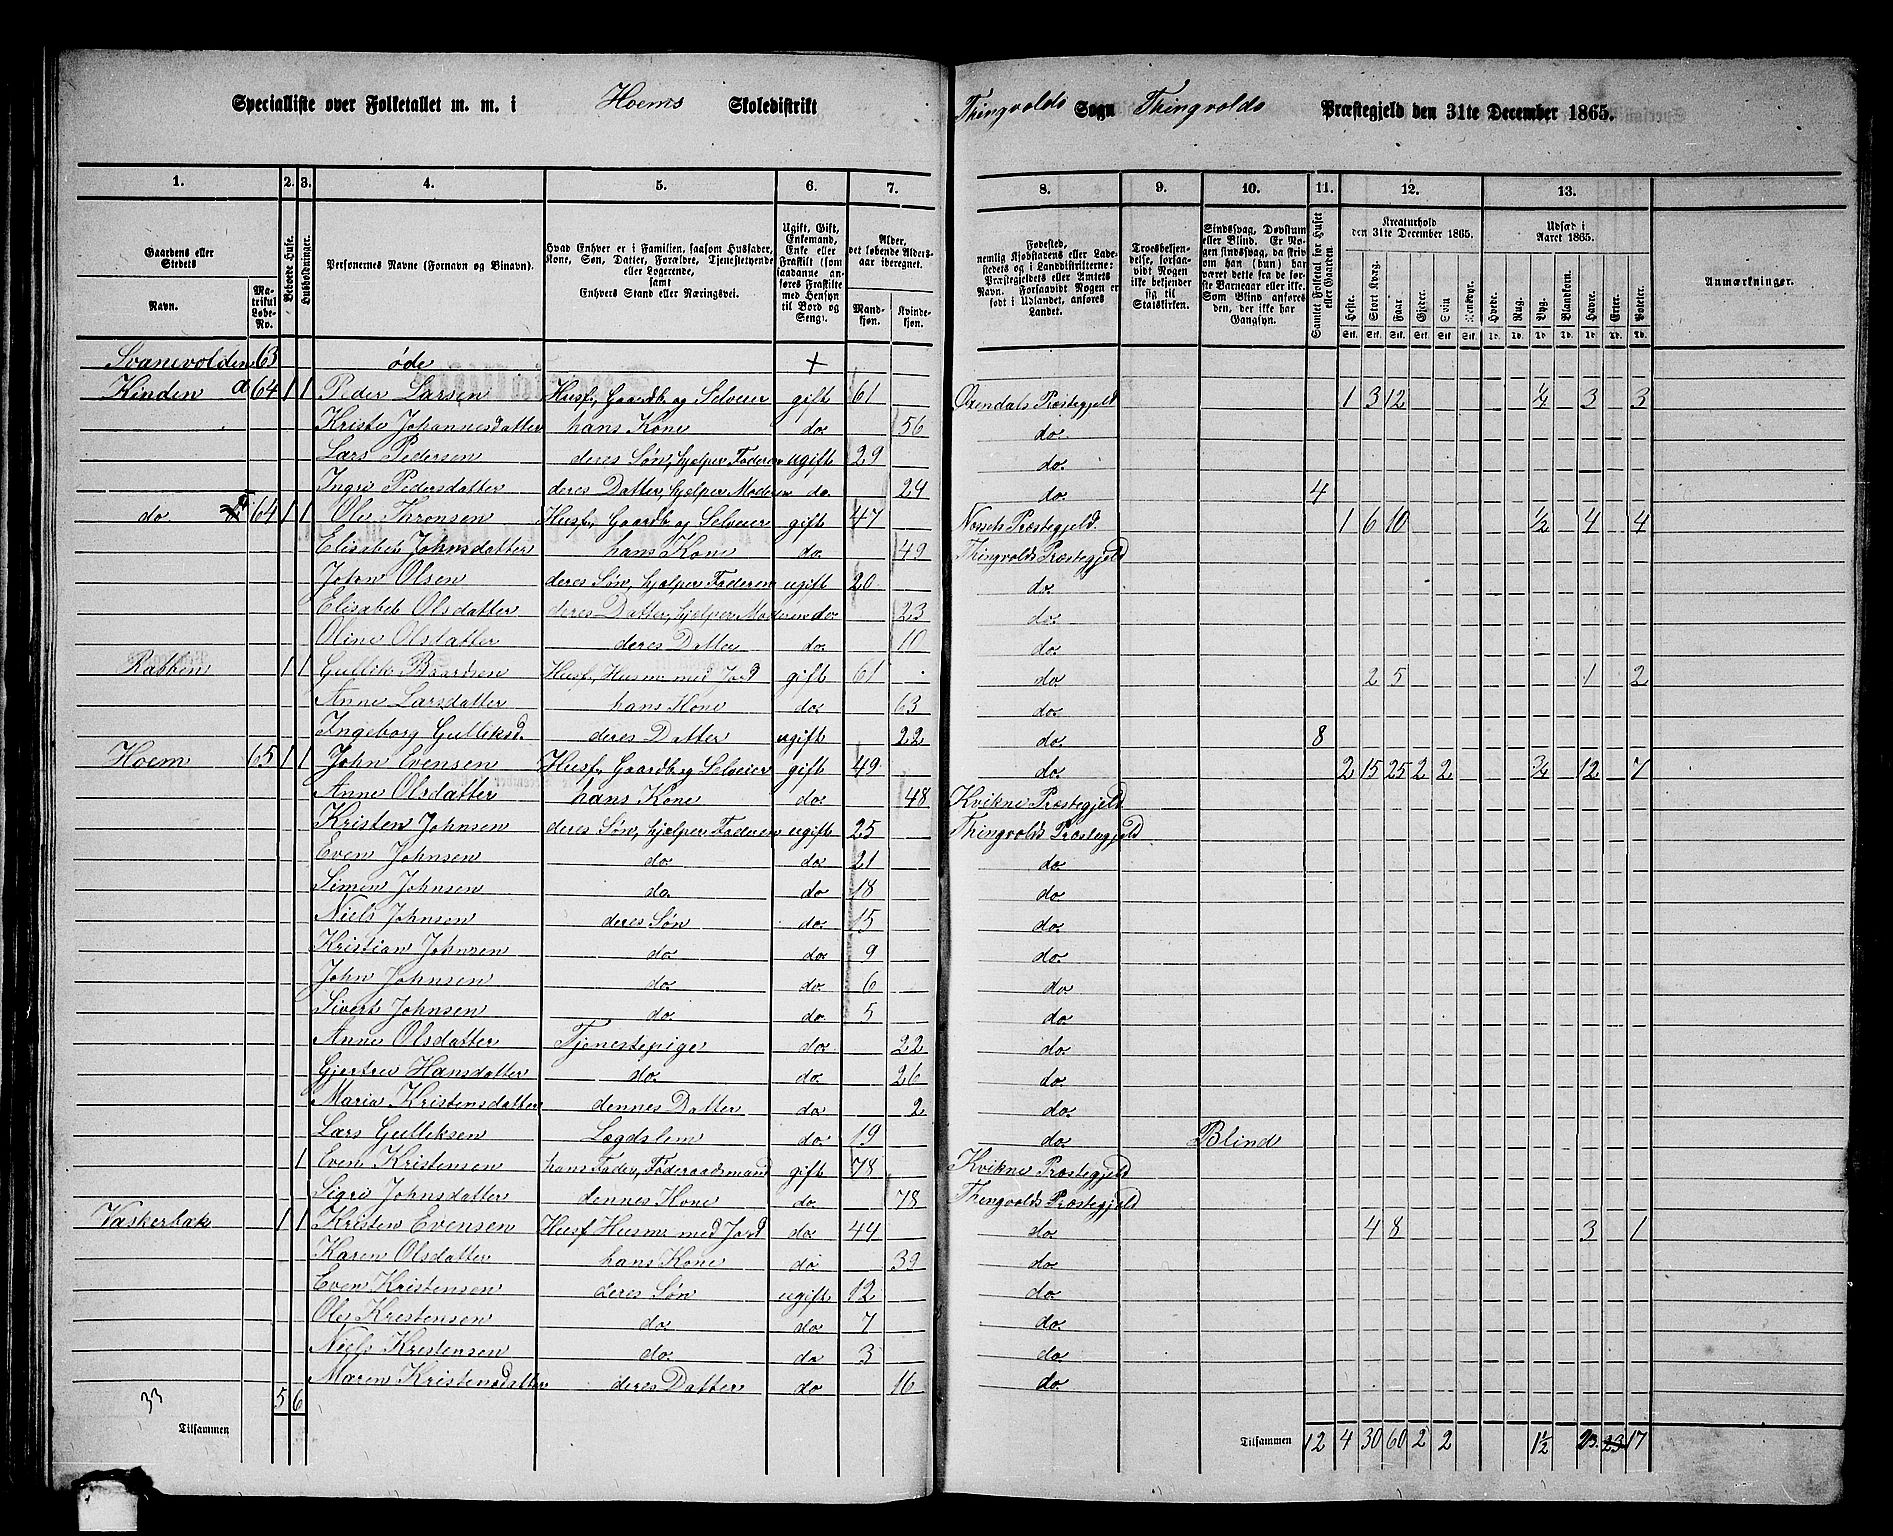 Specialliste over Folketallet m. m. i Hoems Skoledistrikt Thingvolds Sogn Thingvolds Præstegjeld den 31te December 1865.
1. 2. 3. 4. 5. 6. 7. 8. 9. 10. 11. 12. 13.
Gaardens eller Stedets
Navn. Matrikul Løbe-No.
Beboede Huse.
Husholdninger.
Personernes Navne (Fornavn og Binavn).
Hvad Enhver er i Familien, saasom Husfader, Kone, Søn, Datter, Forældre, Tjenestetyende eller Logerende, samt Enhvers Stand eller Næringsvei.
Ugift, Gift, Enkemand, Enke eller Fraskilt (som saadanne anføres Fraskilte med Hensyn til Bord og Seng).
Alder, det løbende Alders-aar iberegnet.
Mandkjøn. Kvindekjøn.
Fødested, nemlig Kjøbstadens eller Ladestedets og i Landdistrikterne: Præstegjeldets eller Amtets Navn. Forsaavidt Nogen er født i Udlandet, anføres Landet.
Troesbekjendelse, forsaavidt Nogen ikke bekjender sig til Statskirken.
Sindssvag, Døvstum eller Blind. Er Nogen sindssvag, da skrives om han (hun) har været dette fra de første Barneaar eller ikke. Som Blind anføres den, der ikke har Gangsyn.
Samlet Folketal for Huset eller Gaarden.
Kreaturhold den 31te December 1865.
Heste. Stort Kvæg. Faar. Gjeter. Svin. Rensdyr.
Udsæd i Aaret 1865.
Hvede. Rug. Byg. Blandkorn. Havre. Erter. Poteter.
Anmærkninger.
Svanevolden 63 øde +
Kinden a 64 1 1 Peder Larsen Husf., Gaardb. og Selveier gift 61 Oxendals Præstegjeld 1 3 12 ¼ 3 3
Kristi Johannesdatter hans Kone do. 56 do.
Lars Pedersen deres Søn, hjelper Faderen ugift 29 do.
Ingri Pedersdatter deres Datter, hjelper Moderen do. 24 do. 4
do 64 1 1 Ole Thronsen Husf., Gaardb. og Selveier gift 47 Nesset Præstegjeld 1 6 10 ½ 4 4
Elisabet Johnsdatter hans Kone do. 49 Thingvolds Præstegjeld
John Olsen deres Søn, hjelper Faderen ugift 20 do.
Elisabet Olsdatter deres Datter, hjelper Moderen do. 23 do.
Oline Olsdatter deres Datter do. 10 do.
Rabben 1 1 Gullik Baardsen Husf., Husm. med Jord gift 61 do 2 5 1 2
Anne Larsdatter hans Kone do. 63 do.
Ingeborg Gulliksd. deres Datter ugift 22 do. 8
Hoem 65 1 1 John Evensen Husf., Gaardb. og Selveier gift 49 do. 2 15 25 2 2 ¾ 12 7
Anne Olsdatter hans Kone do. 48 Kvikne Præstegjeld
Kristen Johnsen deres Søn, hjelper Faderen ugift 25 Thingvolds Præstegjeld
Even Johnsen do. do. 21 do.
Simen Johnsen do do 18 do.
Niels Johnsen deres Søn do. 15 do.
Kristian Johnsen do. do. 9 do.
John Johnsen do. do. 6 do.
Sivert Johnsen do. do. 5 do.
Anne Olsdatter Tjenestepige do. 22 do.
Gjertru Hansdatter do. do. 26 do.
Maria Kristensdatter dennes Datter do 2 do.
Lars Gulliksen Lægdslem do. 19 do. Blind
1 Even Kristensen hans Fader, Føderaadsmand gift 78 Kvikne Præstegjeld
Sigri Johnsdatter dennes Kone do. 78 Thingvolds Præstegjeld
Vaskerbak 1 1 Kristen Evensen Husf. Husm. med Jord do. 44 do 4 8 3 1
Karen Olsdatter hans Kone do 39 do.
Even Kristensen deres Søn ugift 12 do.
Ole Kristensen do. do. 7 do.
Niels Kristensen do. do 3 do.
Maren Kristensdatter deres Datter do 16 do.
33 5 6
Tilsammen Tilsammen 12 4 30 60 2 2 1½ 23 23 17